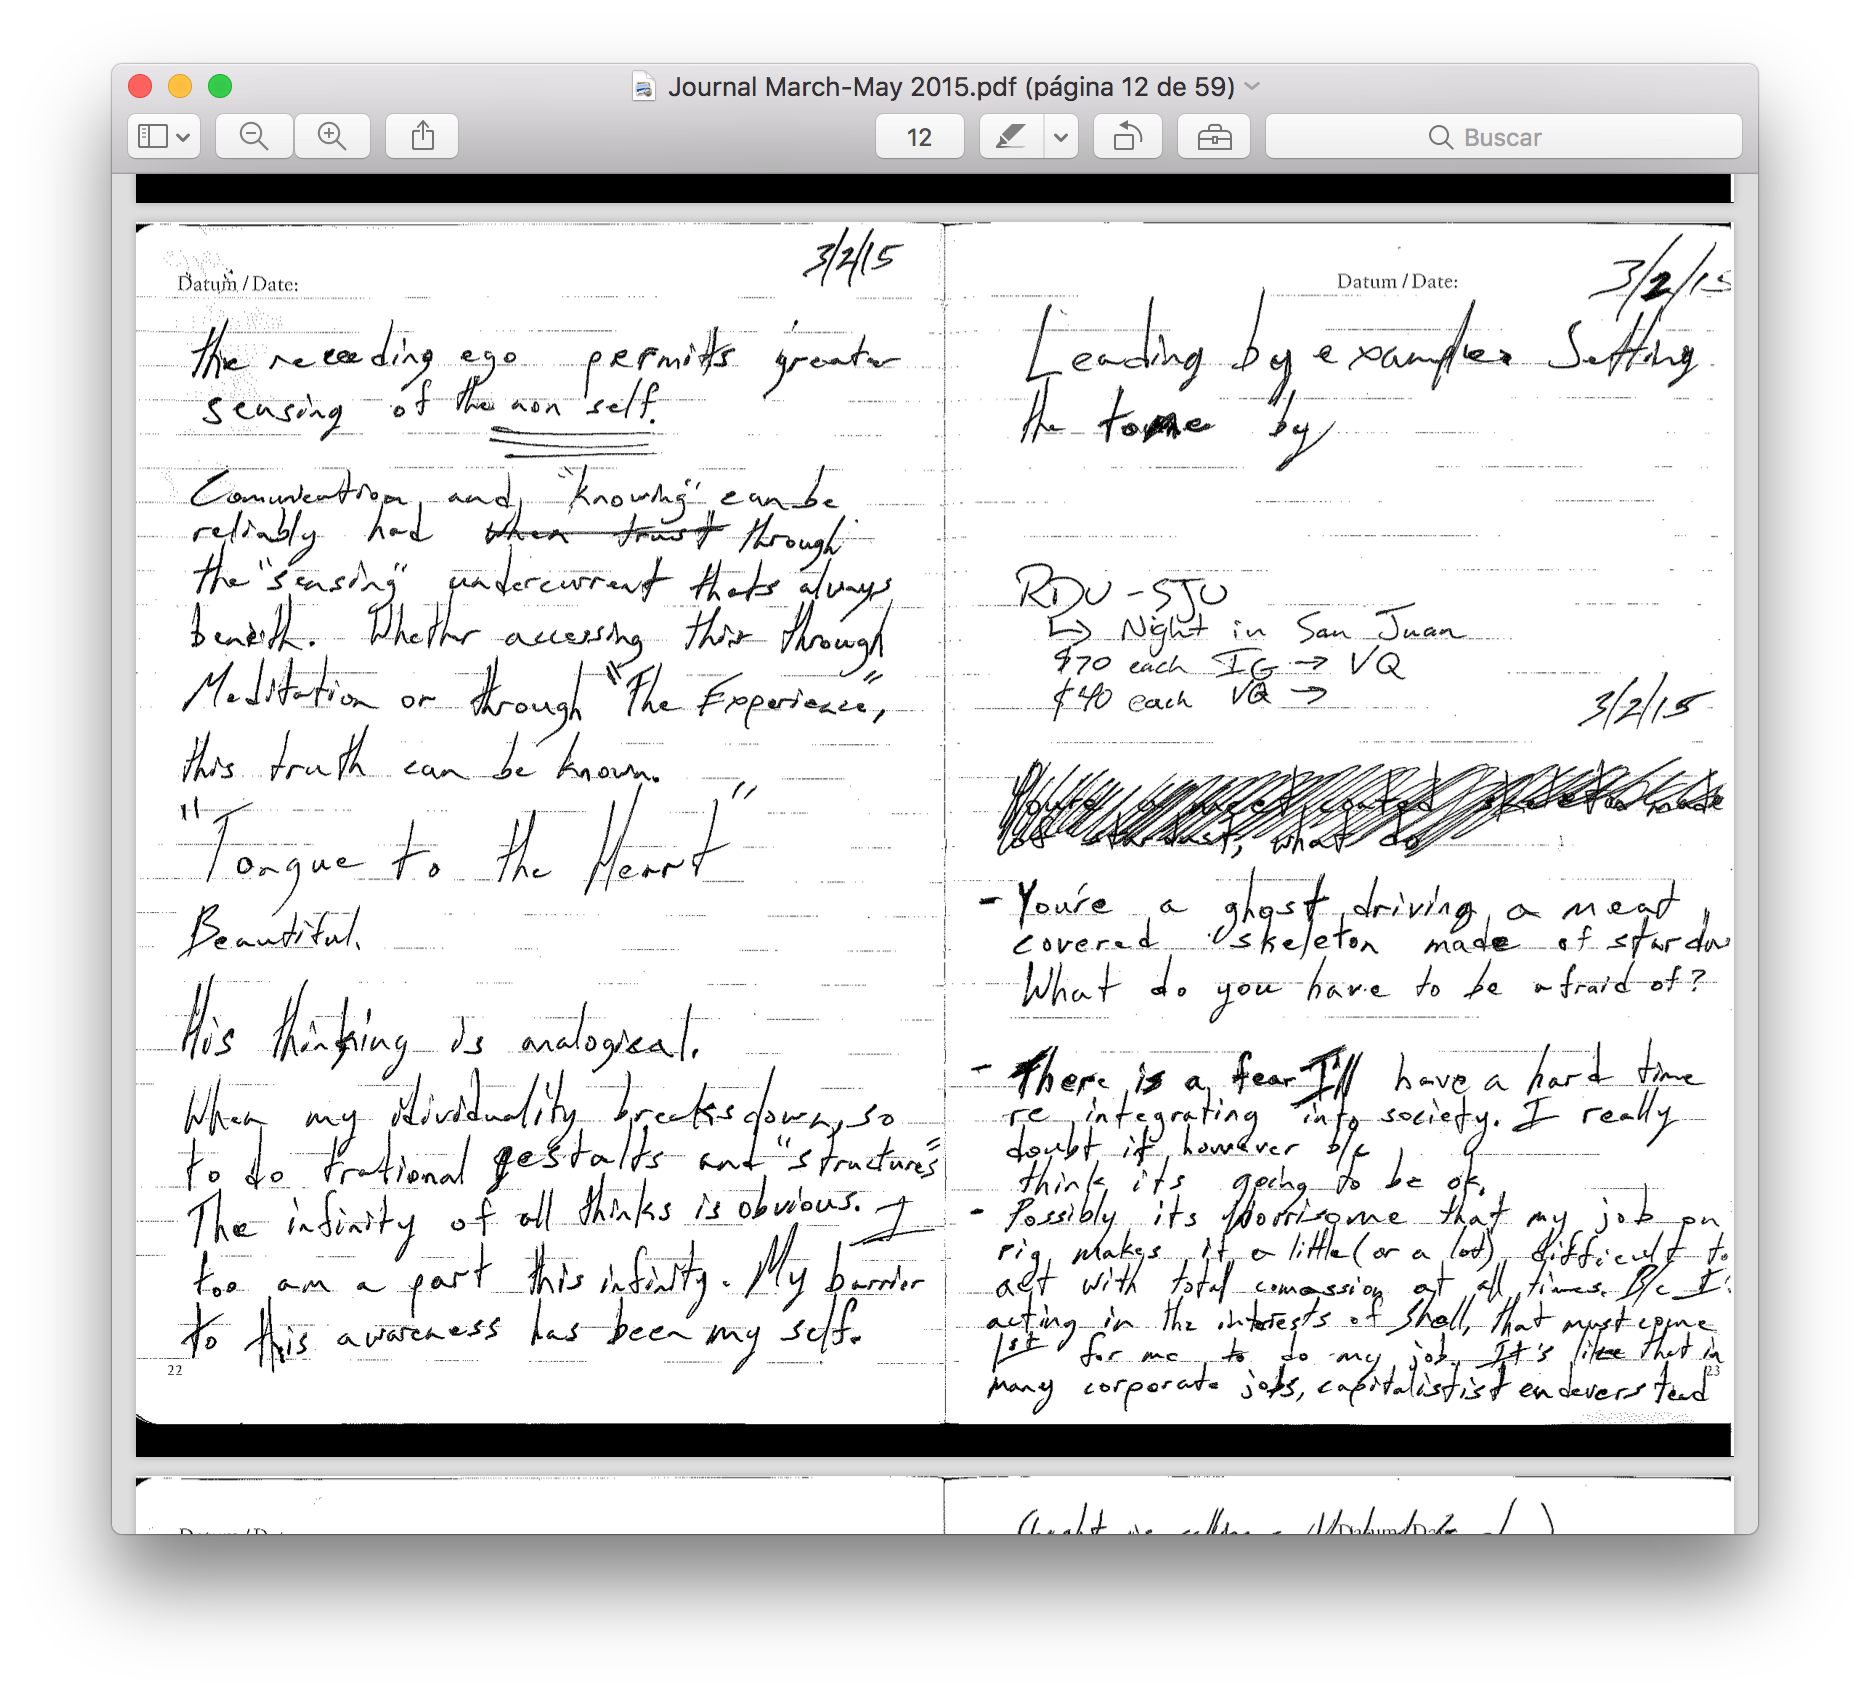 Journal March-May 2015.pdf (página 12 de 59)
12
Buscar
3/2/15
Datum / Date:
the receeding ego permits greater
sensing of the non self.
Comunication and "knowing" can be
reliably had when trust through
the "sensing" undercurrent thats always
beneith. Whether accessing this through
Meditation or through "The Experience",
this truth can be known.
"Tongue to the Heart"
Beautiful.
His thinking is analogical.
When my idividuality breaks down, so
to do trational gestalts and "structures"
The infinity of all thinks is obvious. I
too am a part this infinity. My barrier
to this awareness has been my self.
22
Datum / Date:
3/2/15
Leading by example. Setting
the tone by
RDU - SJU
↳ Night in San Juan
$70 each IG → VQ
$40 each VQ →
3/2/15
You're a meat coated skeleton made
of stardust, what do
- You're a ghost driving a meat
covered skeleton made of stardu
What do you have to be afraid of?
- There is a fear I'll have a hard time
re integrating into society. I really
doubt it however b/c
think its going to be ok.
- Possibly its worrisome that my job on
rig makes it a little (or a lot) difficult to
act with total comassion at all times. B/c I'
acting in the interests of Shell, that must come
1st for me to do my job. It's like that in
many corporate jobs, capitalistist endevers tead
23
Datum / Date
Datum / Date